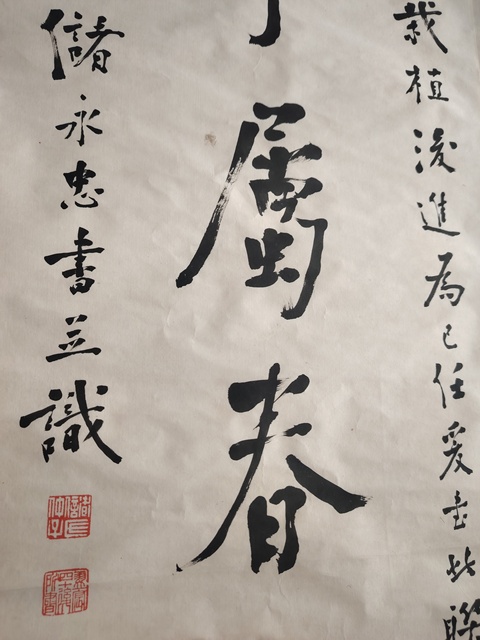 栽植後進為己任爰書此聯
屬春
儲永忠書並識